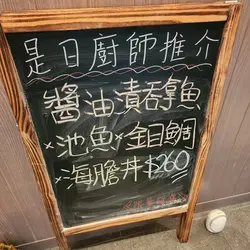 是日廚師推介
醬油漬吞拿魚
×池魚×金目鯛
×海膽丼$260